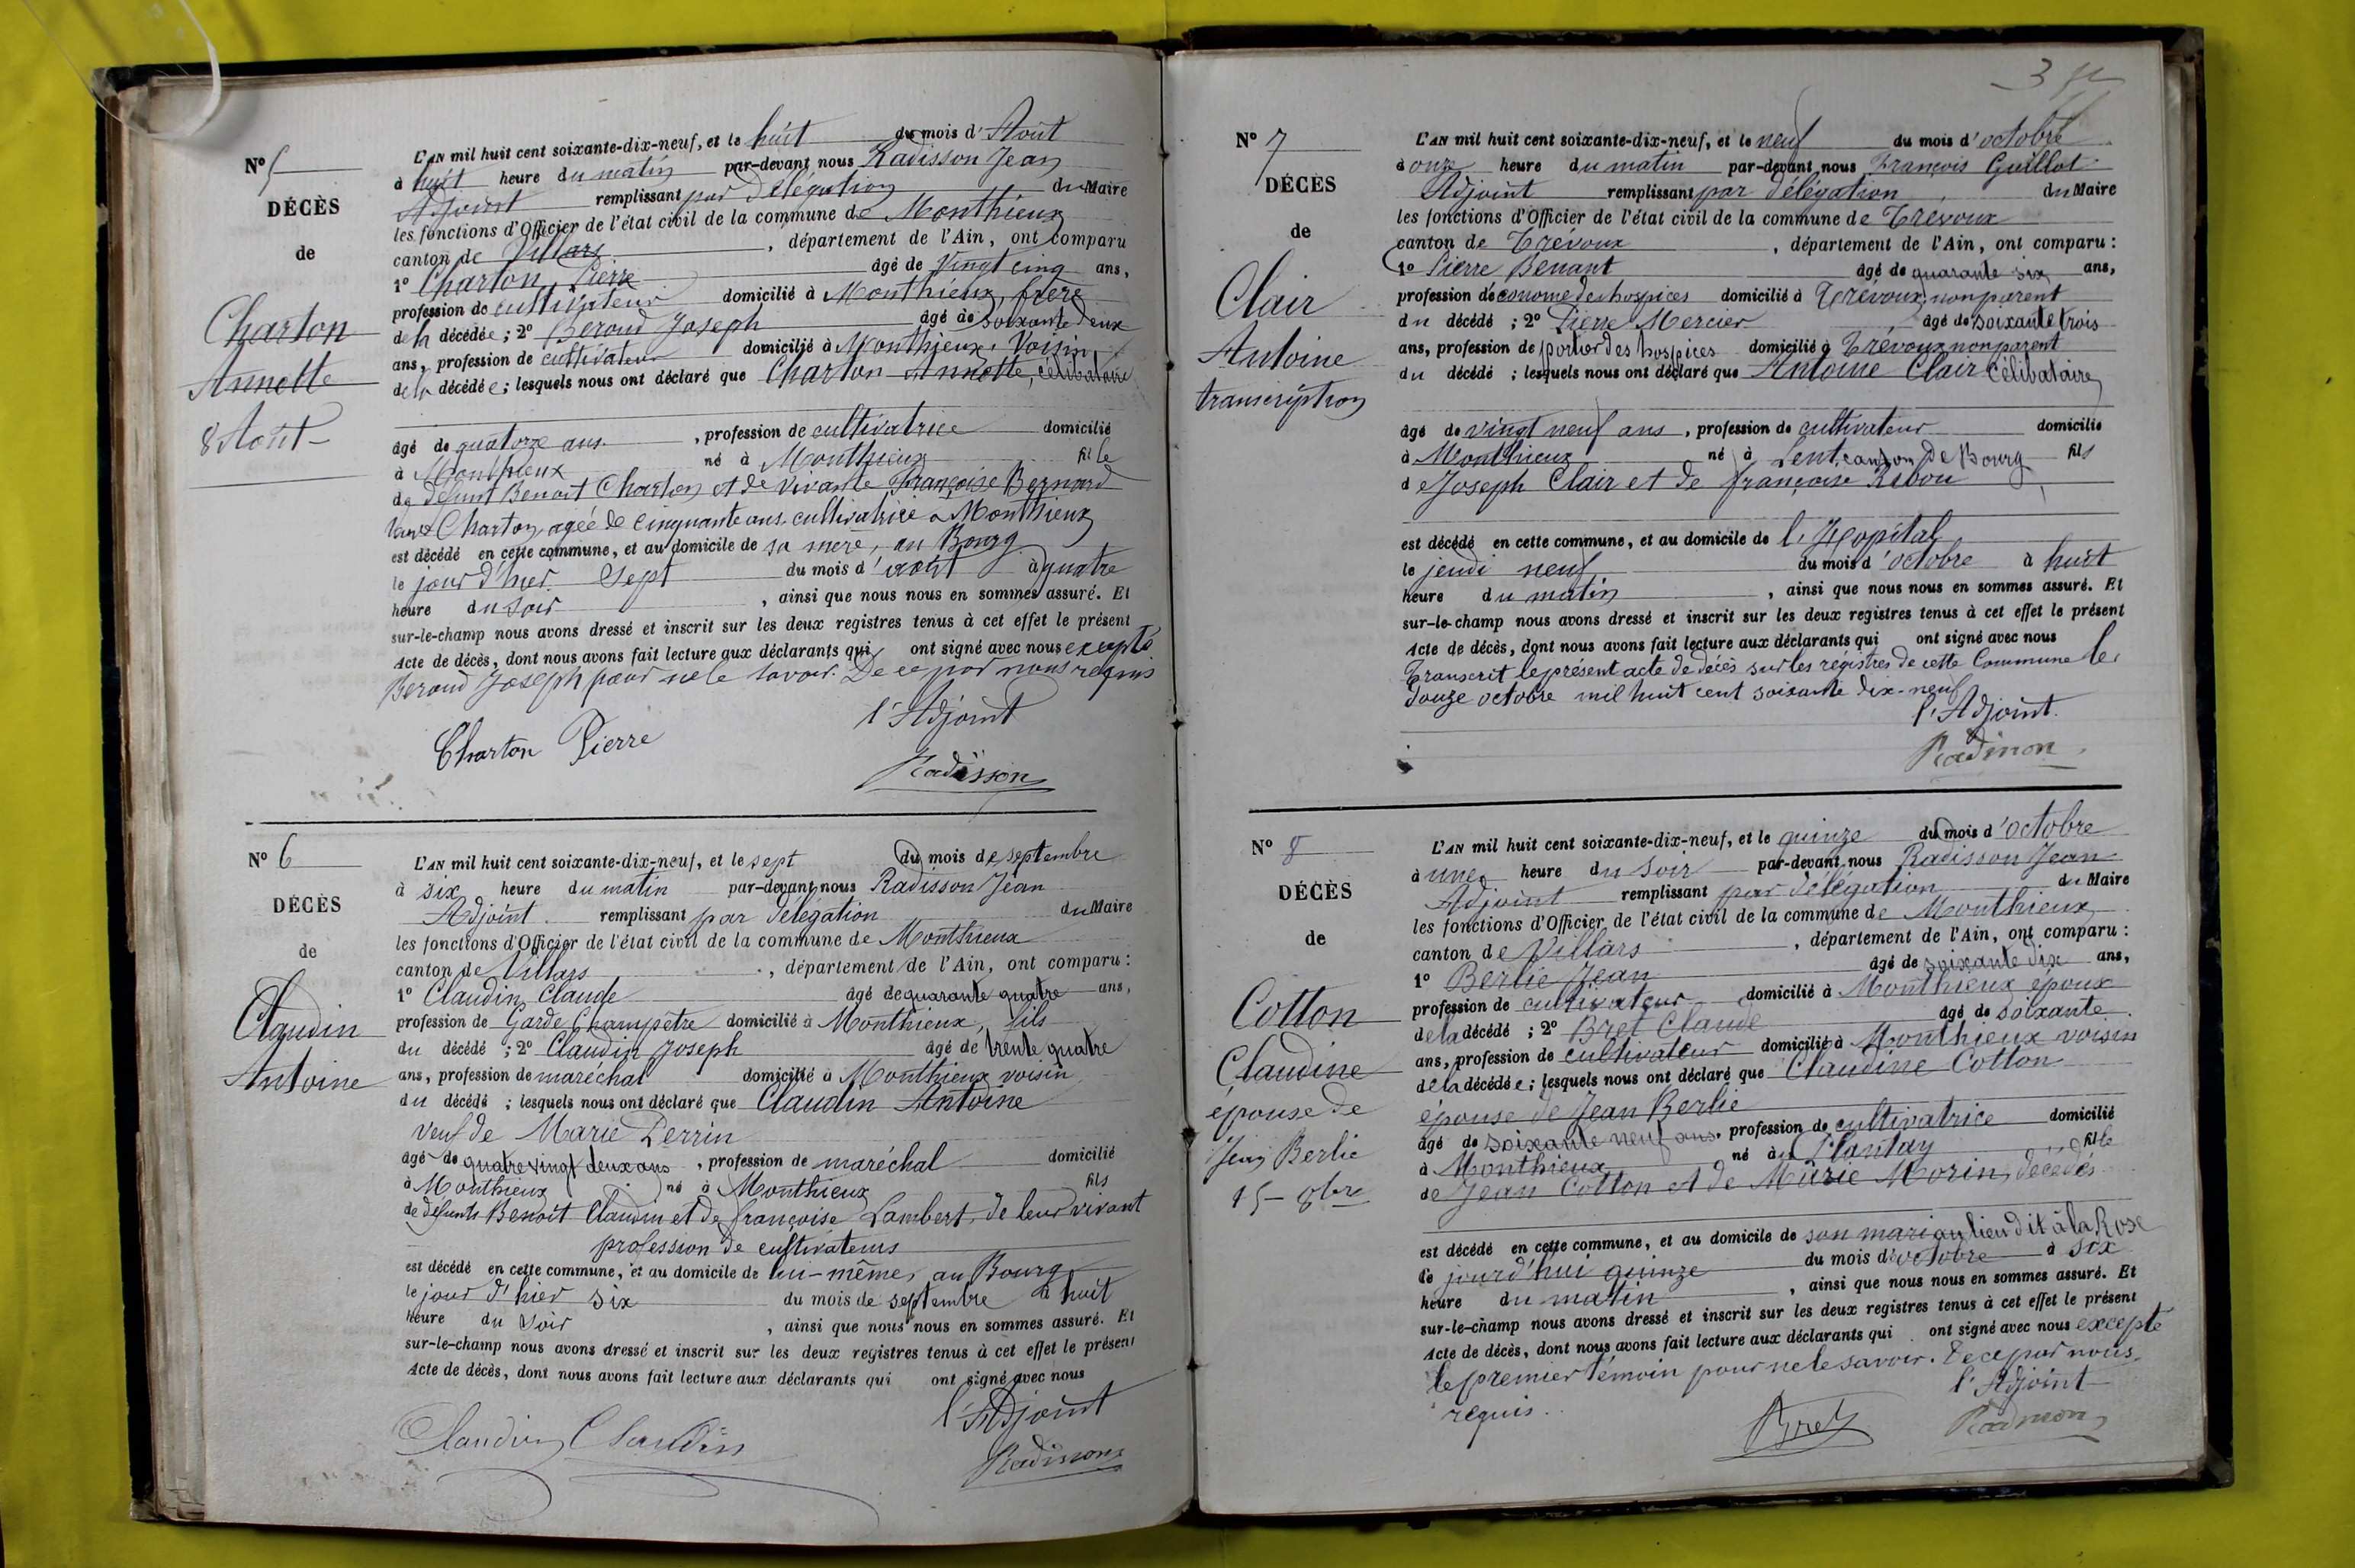 N° 5
DÉCÈS
de
Charton
Annette
8 Août
L'AN mil huit cent soixante-dix-neuf, et le huit du mois d'Août
à huit heure du matin par-devant nous Radisson Jean
Adjoint remplissant par délégation du Maire
les fonctions d'Officier de l'état civil de la commune de Monthieux
canton de Villars, département de l'Ain, ont comparu
1° Charton Pierre âgé de vingt cinq ans,
profession de cultivateur domicilié à Monthieux, frère
de la décédée; 2° Beroud Joseph âgé de soixante deux
ans, profession de cultivateur domicilié à Monthieux, Voisin
de la décédée; lesquels nous ont déclaré que Charton Annette, célibataire
âgé de quatorze ans, profession de cultivatrice domicilié
à Monthieux né à Monthieux fille
de défunt Benoit Charton et de vivante Françoise Bernard
Charton, agée de cinquante ans cultivatrice a Monthieux
est décédé en cette commune, et au domicile de sa mere, au Bourg
le jour d'hier Sept du mois d'août à quatre
heure du soir, ainsi que nous nous en sommes assuré. Et
sur-le-champ nous avons dressé et inscrit sur les deux registres tenus à cet effet le présent
Acte de décès, dont nous avons fait lecture aux déclarants qui ont signé avec nous excepté
Beroud Joseph pour ne le savoir. De ce par nous requis
l'Adjoint
Charton Pierre
Radisson
N° 6
DÉCÈS
de
Claudin
Antoine
L'AN mil huit cent soixante-dix-neuf, et le sept du mois de septembre
à six heure du matin par-devant nous Radisson Jean
Adjoint remplissant par délégation du Maire
les fonctions d'Officier de l'état civil de la commune de Monthieux
canton de Villars, département de l'Ain, ont comparu:
1° Claudin Claude âgé de quarante quatre ans,
profession de Garde Champêtre domicilié à Monthieux, fils
du décédé; 2° Claudin Joseph âgé de trente quatre
ans, profession de maréchal domicilié à Monthieux voisin
du décédé; lesquels nous ont déclaré que Claudin Antoine
veuf de Marie Perrin
âgé de quatre vingt deux ans, profession de maréchal domicilié
à Monthieux né à Monthieux fils
de défunts Benoit Claudin et de françoise Lambert, de leur vivant
profession de cultivateurs
est décédé en cette commune, et au domicile de lui-même, au Bourg
le jour d'hier six du mois de septembre à huit
heure du soir, ainsi que nous nous en sommes assuré. Et
sur-le-champ nous avons dressé et inscrit sur les deux registres tenus à cet effet le présent
Acte de décès, dont nous avons fait lecture aux déclarants qui ont signé avec nous
l'Adjoint
Claudin Claudin
Radisson
N° 7
DÉCÈS
de
Clair
Antoine
transcription
L'AN mil huit cent soixante-dix-neuf, et le neuf du mois d'octobre
à onze heure du matin par-devant nous François Guillot
Adjoint remplissant par délégation du Maire
les fonctions d'Officier de l'état civil de la commune de Trévoux
canton de Trévoux, département de l'Ain, ont comparu:
1° Pierre Benant âgé de quarante six ans,
profession d'économe des hospices domicilié à Trévoux, non parent
du décédé; 2° Pierre Mercier âgé de soixante trois
ans, profession de portier des hospices domicilié à Trévoux non parent
du décédé; lesquels nous ont déclaré que Antoine Clair célibataire
âgé de vingt neuf ans, profession de cultivateur domicilié
à Monthieux né à Lent, canton de Bourg fils
de Joseph Clair et de françoise Rebou
est décédé en cette commune, et au domicile de l'Hopital
le jeudi neuf du mois d'octobre à huit
heure du matin, ainsi que nous nous en sommes assuré. Et
sur-le-champ nous avons dressé et inscrit sur les deux registres tenus à cet effet le présent
Acte de décès, dont nous avons fait lecture aux déclarants qui ont signé avec nous
Transcrit le présent acte de décès sur les régistres de cette Commune le
douze octobre mil huit cent soixante dix-neuf
l'Adjoint.
Radisson
N° 8
DÉCÈS
de
Cotton
Claudine
épouse de
Jean Berlie
15 - 8bre
L'AN mil huit cent soixante-dix-neuf, et le quinze du mois d'octobre
à une heure du soir par-devant nous Radisson Jean
Adjoint remplissant par délégation du Maire
les fonctions d'Officier de l'état civil de la commune de Monthieux
canton de Villars, département de l'Ain, ont comparu:
1° Berlie Jean âgé de soixante dix ans,
profession de cultivateur domicilié à Monthieux époux
de la décédé; 2° Bret Claude âgé de soixante
ans, profession de cultivateur domicilié à Monthieux voisin
de la décédée; lesquels nous ont déclaré que Claudine Cotton
épouse de Jean Berlie
âgé de soixante neuf ans, profession de cultivatrice domicilié
à Monthieux né au Plantay fille
de Jean Cotton et de Marie Morin, décédés
est décédé en cette commune, et au domicile de son mari au lieu dit à la Rose
le jourd'hui quinze du mois d'octobre à six
heure du matin, ainsi que nous nous en sommes assuré. Et
sur-le-champ nous avons dressé et inscrit sur les deux registres tenus à cet effet le présent
Acte de décès, dont nous avons fait lecture aux déclarants qui ont signé avec nous excepté
le premier témoin pour ne le savoir. De ce par nous
requis.
l'Adjoint
Bret
Radisson